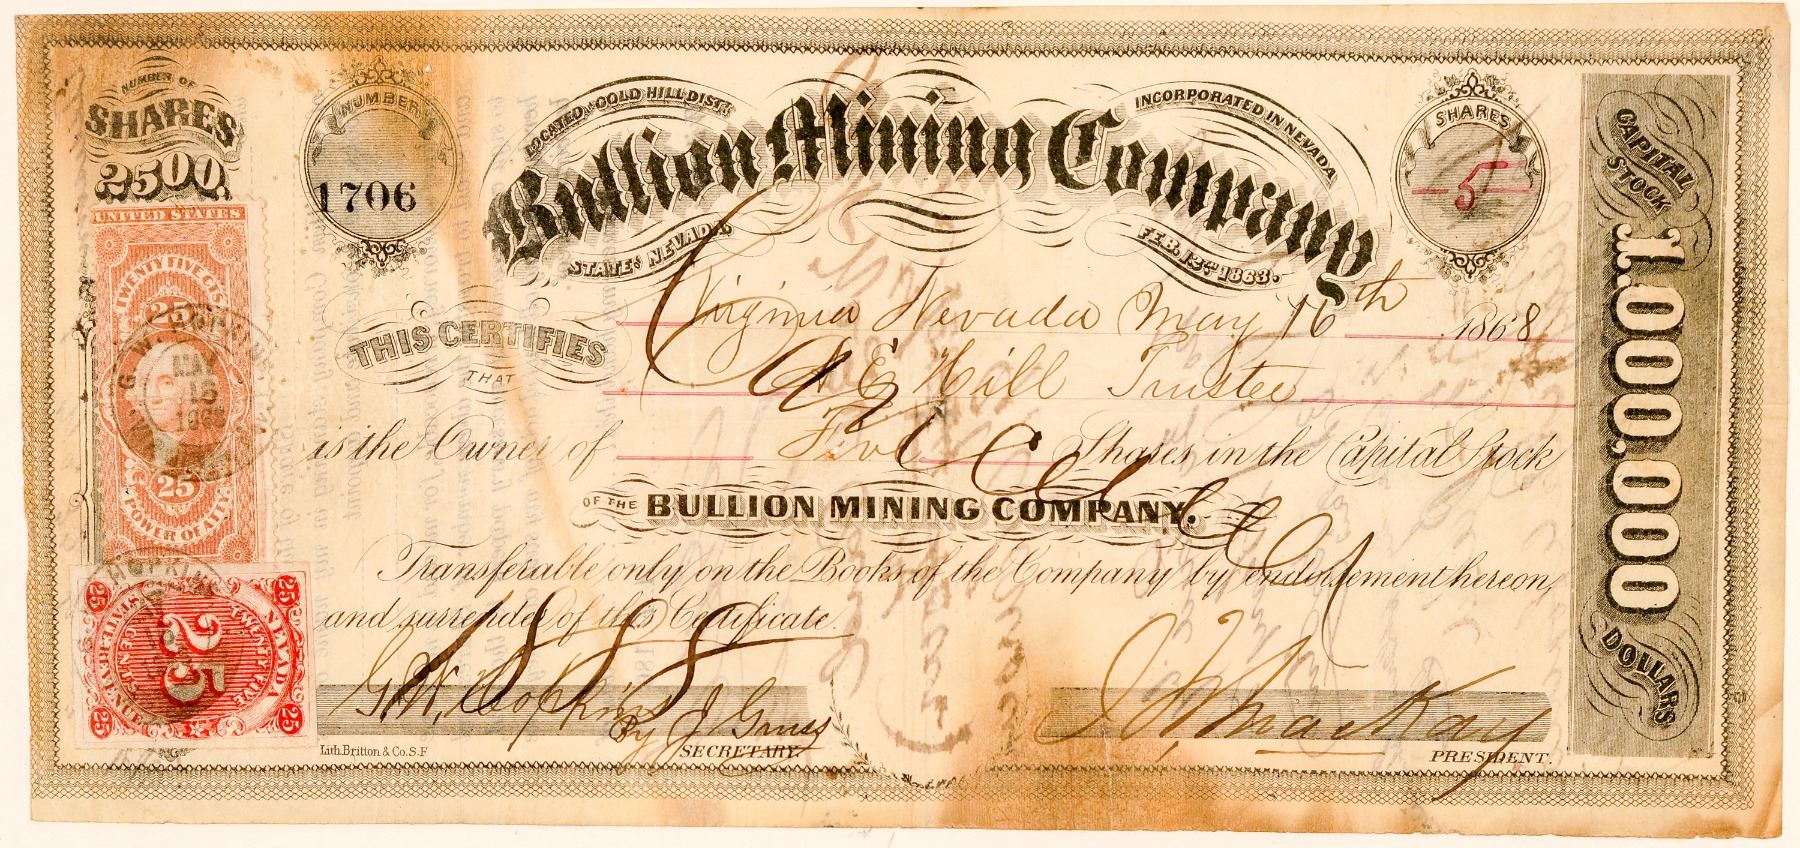 NUMBER OF
SHARES
2500
NUMBER
1706
LOCATED GOLD HILL DIST.
INCORPORATED IN NEVADA
Bullion Mining Company
STATE OF NEVADA.
FEB. 12TH 1863.
SHARES
5
CAPITAL
STOCK
1.000.000
DOLLARS
UNITED STATES
TWENTY FIVE CTS
25
25
POWER OF AT'Y
G. W. HOPKINS
MAY
16
1868
Virginia Nevada May 16th 1868
THIS CERTIFIES
THAT
A E Hill Trustee
is the Owner of Five Shares in the Capital Stock
OF THE BULLION MINING COMPANY.
Transferable only on the Books of the Company by endorsement hereon,
and surrender of this Certificate.
Cancelled
1888
HOPKINS
NEVADA
TWENTY FIVE
25
25
25
25
25
CENTS
STATE REVENUE
G. W. Hopkins
By J Gruss
SECRETARY.
J W MacKay
PRESIDENT.
Lith. Britton & Co. S.F